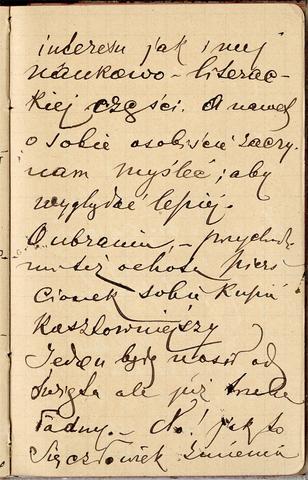 interesu jak i mej
naukowo-literac-
kiej części. A nawet
o sobie osobiście zaczy-
nam myśleć; aby
wyglądać lepiej.
O ubraniu, – przychodzi
mi też ochota pierś
cionek sobie kupić
kosztowniejszy
Jeden będę nosił od
święta ale już
ładny. – No! jak to
się człowiek zmienia